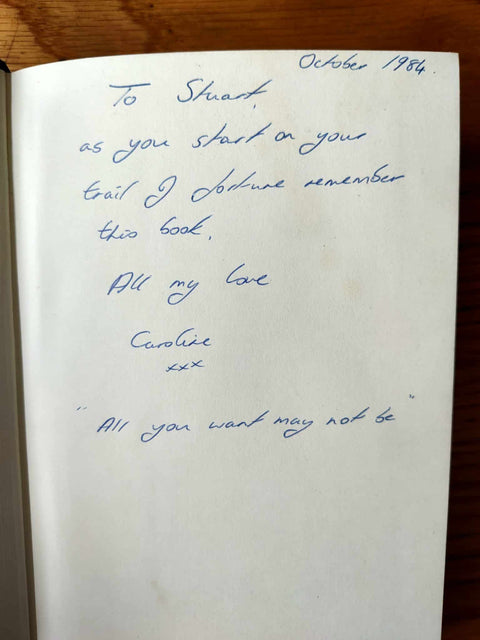 October 1984.
To Stuart,
as you start on your
trail of fortune remember
this book.
All my love
Caroline
xxx
"All you want may not be"